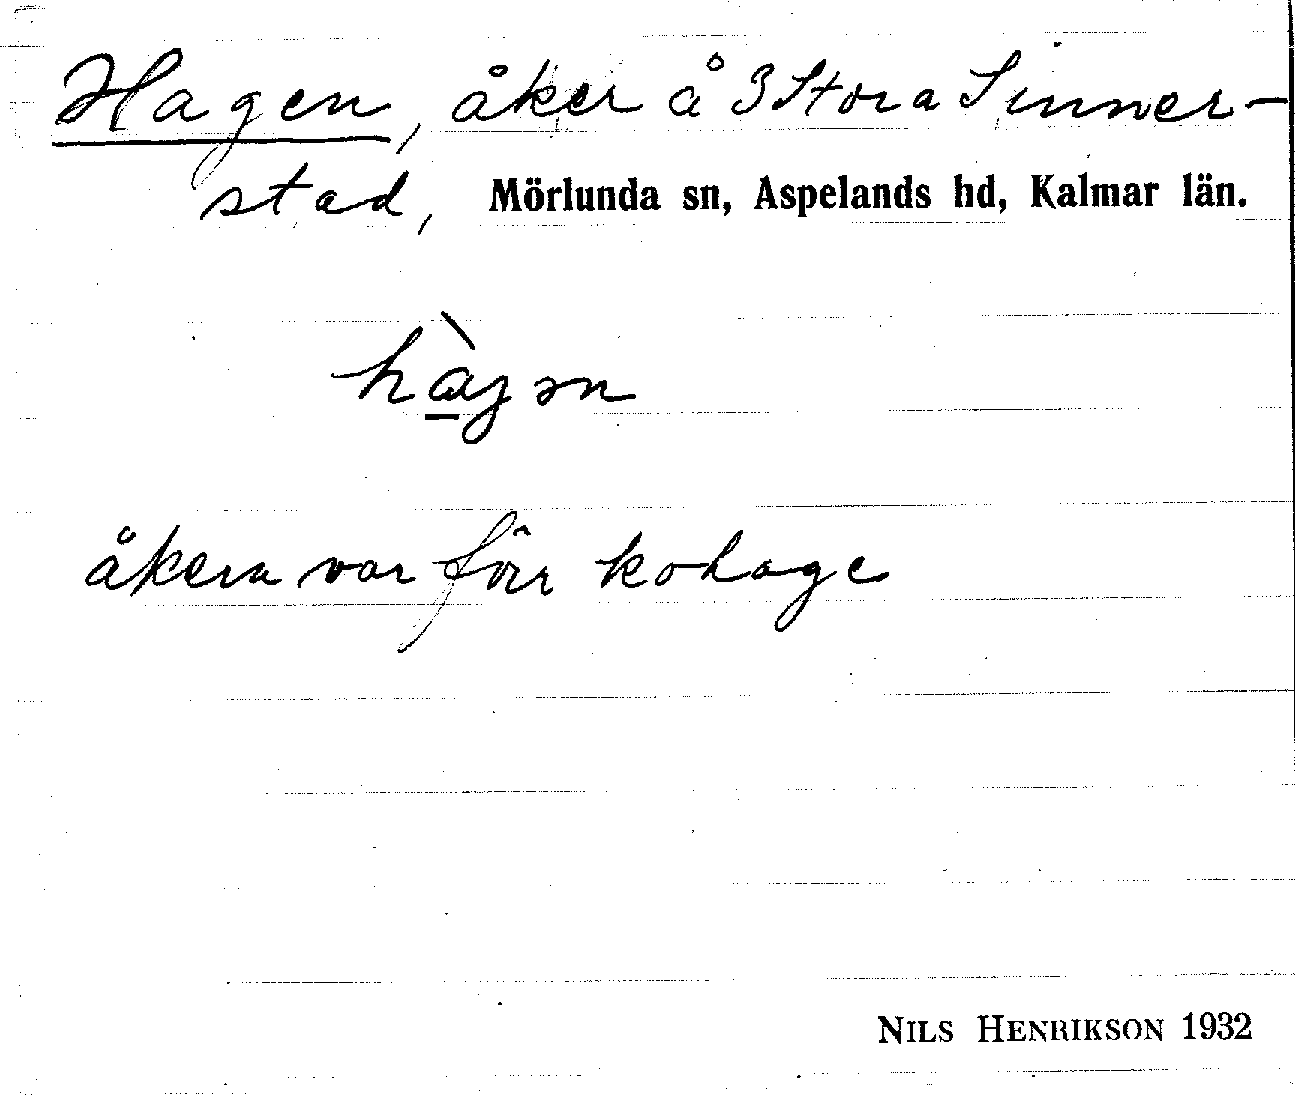 Hagen, åker å 3 Stora Sinner-
stad, Mörlunda sn, Aspelands hd, Kalmar län.
hàgən
åkern var förr kohage
NILS HENRIKSON 1932